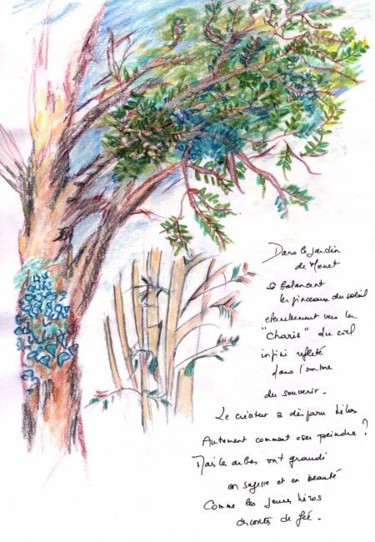 Dans le jardin
de Monet
se balancent
les pinceaux du soleil
éternellement vers le
"charis" du ciel
infini reflété
dans l'ombre
du souvenir.
Le créateur a disparu hélas
Autrement comment oser peindre ?
Mais les arbres ont grandi
en sagesse et en beauté
Comme les jeunes héros
des contes de fée.